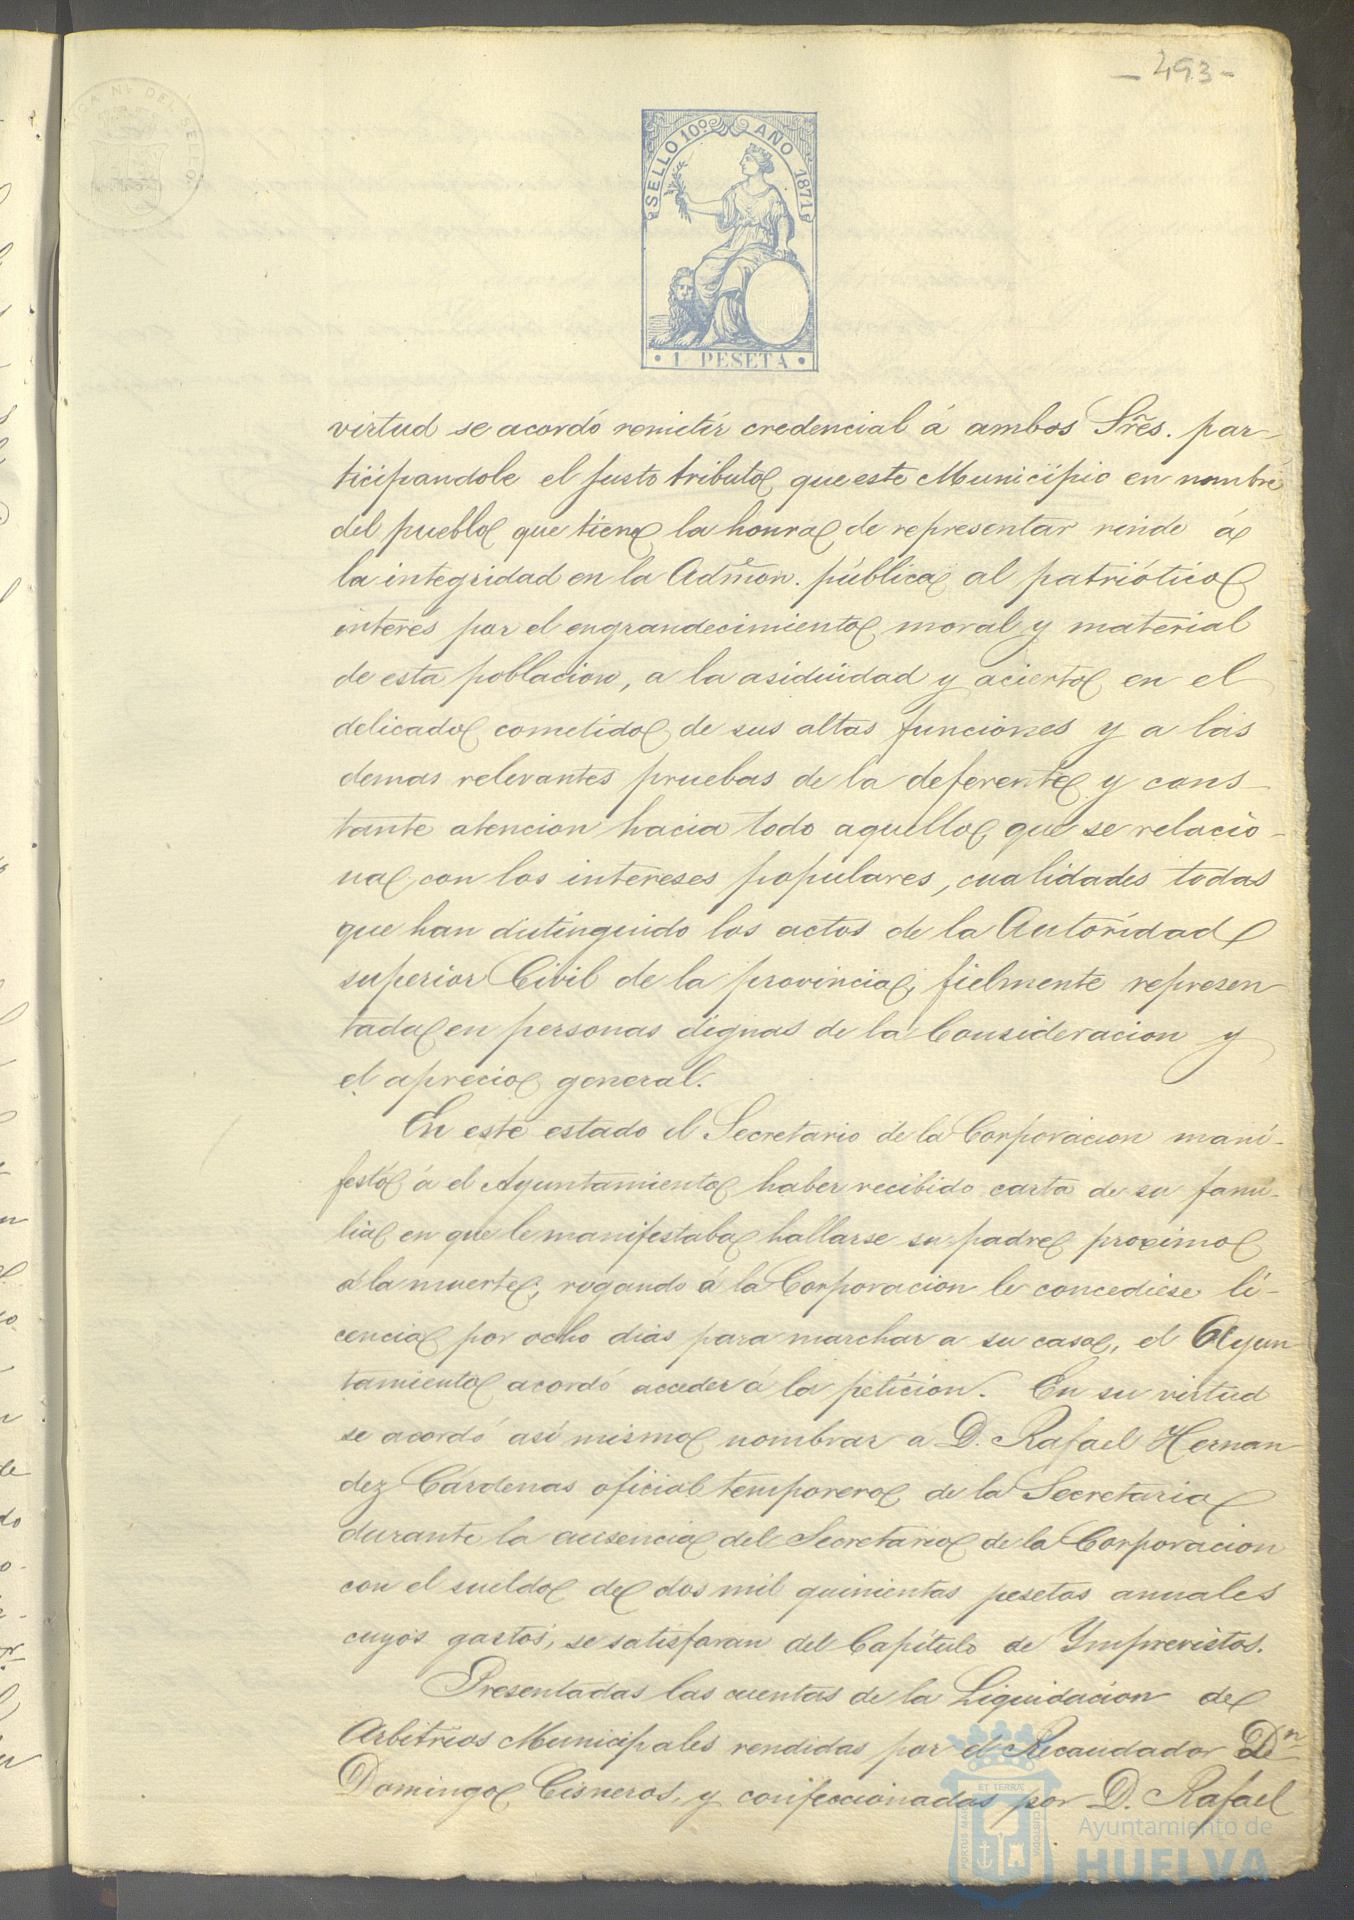 — 493 –
SELLO 10º AÑO 1871
· 1 PESETA ·
virtud se acordó remitir credencial á ambos Sr̃es. par-
ticipandole el justo tributo que este Municipio en nombre
del pueblo que tiene la honra de representar rinde á
la integridad en la Adm̃on. pública al patriótico
interes por el engrandecimiento moral y material
de esta poblacion, a la asiduidad y acierto en el
delicado cometido de sus altas funciones y a las
demas relevantes pruebas de la deferente y cons-
tante atencion hacia todo aquello que se relacio-
na con los intereses populares, cualidades todas
que han distinguido los actos de la Autoridad
superior Civil de la provincia, fielmente represen
tada en personas dignas de la Consideracion y
el aprecio general.
En este estado el Secretario de la Corporacion mani-
festó á el Ayuntamiento haber recibido carta de su fami-
lia en que le manifestaba hallarse su padre proximo
á la muerte; rogando á la Corporacion le concediese li-
cencia por ocho dias para marchar a su casa, el Ayun
tamiento acordó acceder á la peticion. En su virtud
se acordó asi mismo nombrar a D. Rafael Hernan
dez Cárdenas oficial temporero de la Secretaria
durante la ausencia del Secretario de la Corporacion
con el sueldo de dos mil quinientas pesetas anuales
cuyos gastos, se satisfaran del Capítulo de Ymprevistos.
Presentadas las cuentas de la Liquidacion de
Arbitrios Municipales rendidas por el Recaudador Dn
Domingo Cisneros, y confeccionadas por D. Rafael
Ayuntamiento de
HUELVA